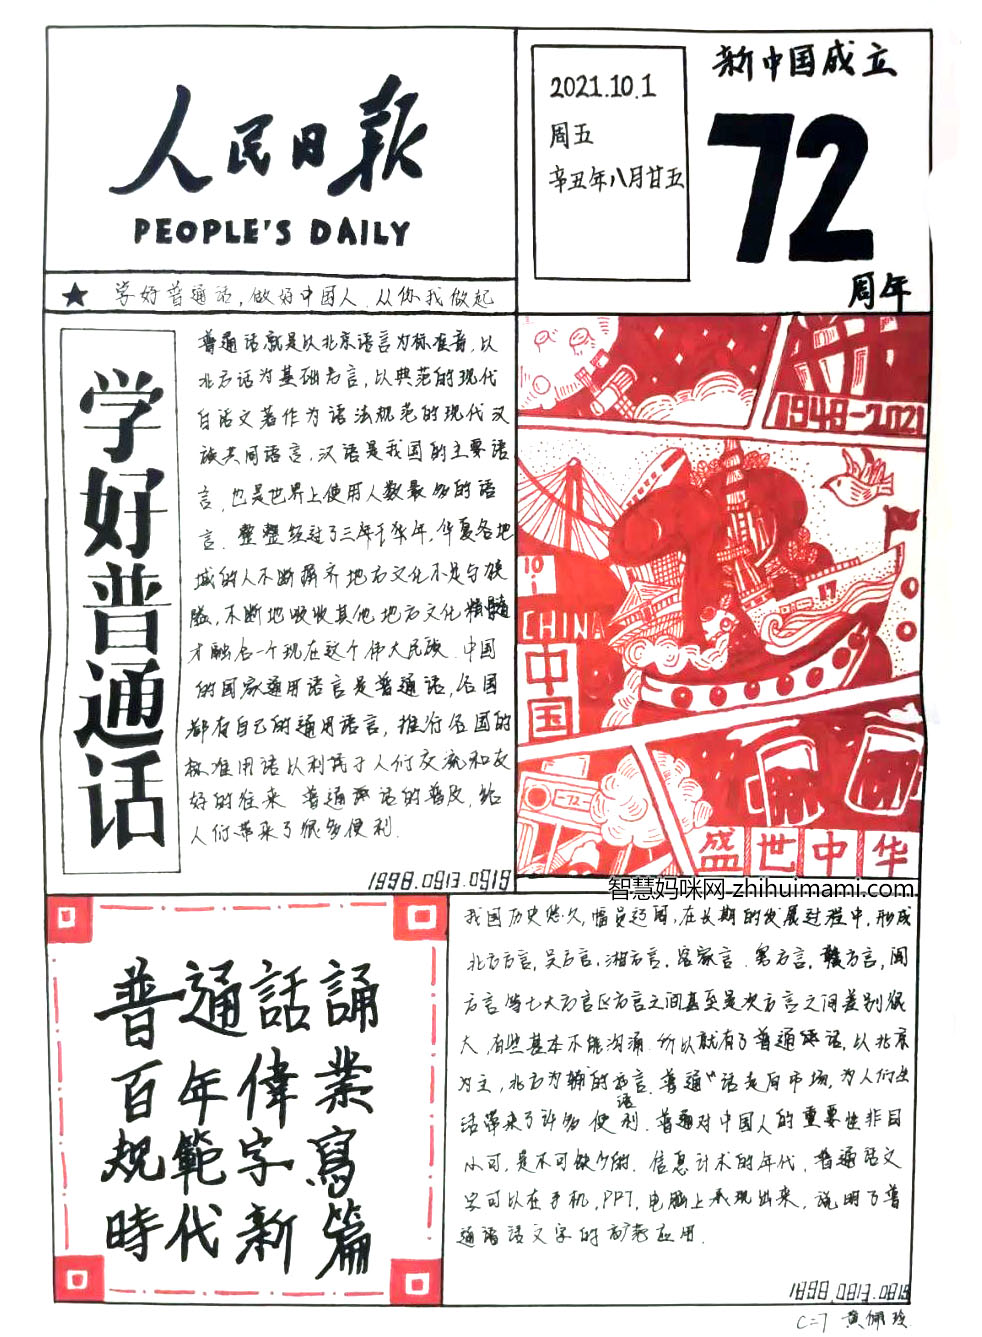 人民日报
PEOPLE'S DAILY
2021.10.1
周五
辛丑年八月廿五
新中国成立
72
周年
★ 学好普通话，做好中国人，从你我做起
学好普通话
普通话就是以北京语言为标准音，以
北方话为基础方言，以典范的现代
白话文著作为语法规范的现代汉
族共同语言，汉语是我国的主要语
言，也是世界上使用人数最多的语
言。整整经过了三年年，华夏各地
域的人不断摒弃地方文化不足与狭
隘，不断地吸收其他地方文化精髓
才融合一个现在这个伟大民族。中国
的国家通用语言是普通话，各国
都有自己的通用语言，推行各国的
标准用语以利于人们交流和友
好的往来 普通话的普及，给
人们带来了很多便利.
1998.0913.0919
1949-2021
10.1
CHINA
中国
17
-72-
盛世中华
智慧妈咪网-zhihuimami.com
普通話誦
百年偉業
規範字寫
時代新篇
我国历史悠久，幅员辽阔，在长期的发展过程中，形成
北方方言，吴方言，湘方言，客家言，粤方言，赣方言，闽
方言等七大方言区方言之间甚至是次方言之间差别很
大，有些基本不能沟通.所以就有了普通话，以北京
为主，北方为辅的方言.普通话走向市场，为人们生
活带来了许多便利.普通话对中国人的重要性非同
小可，是不可缺少的.信息计术的年代，普通话文
字可以在手机，PPT，电脑上展现出来，说明了普
通话语文字的应用.
1898.0813.0819
C=7 黄佩玲